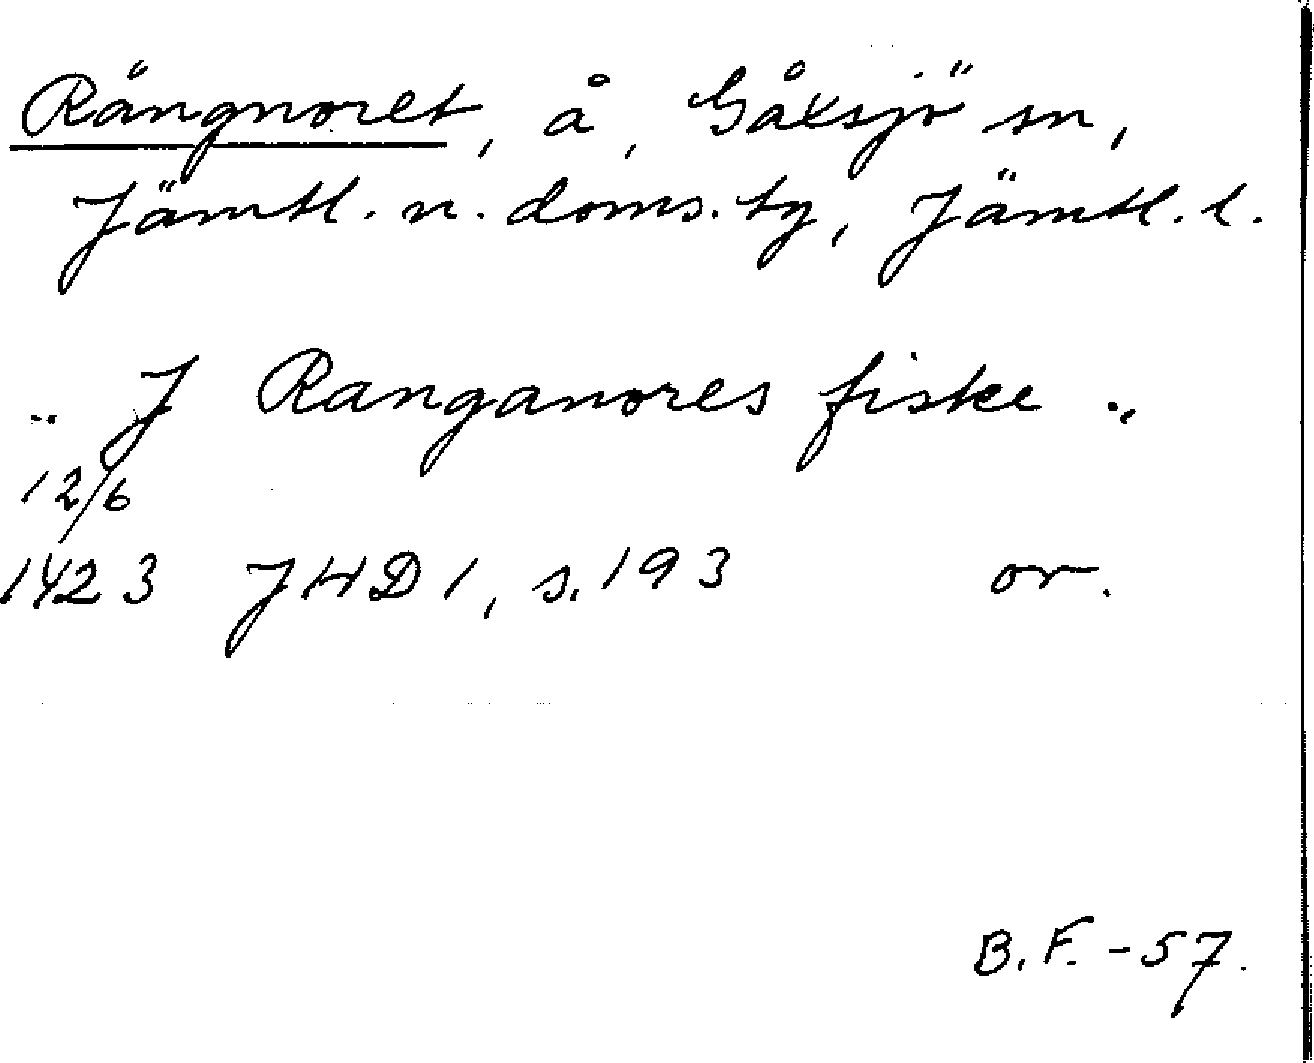 Rångnoret, å, Gåxsjö sn,
Jämtl. n. doms. tg, Jämtl. l.
" J Ranganores fiske "
12/6
1423 JHD 1, s. 193 or.
B. F. - 57.